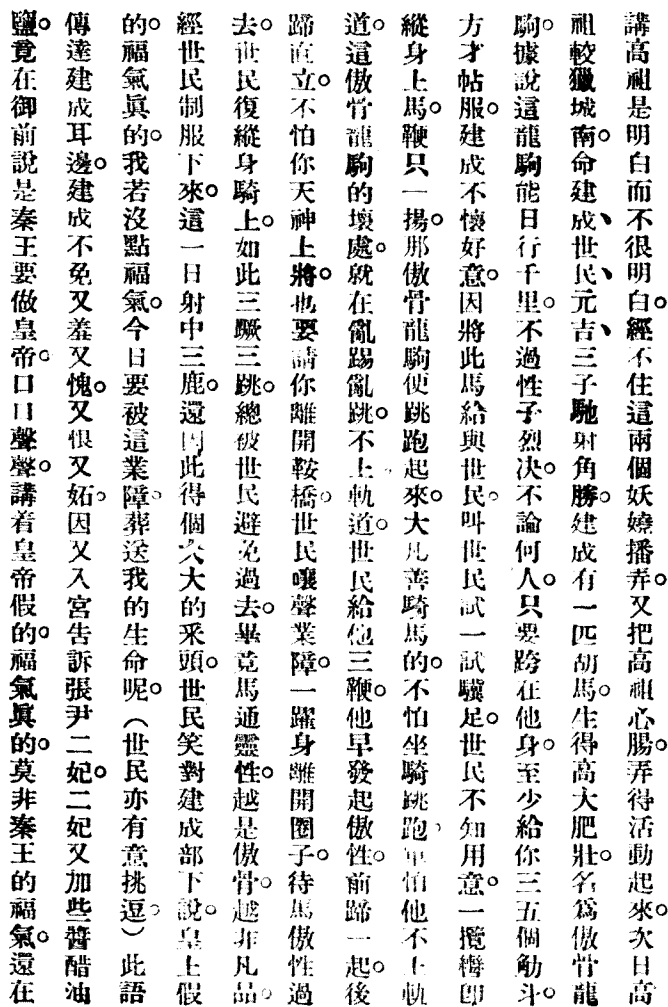 講高祖是明白而不很明白。經不住這兩個妖嬈播弄。又把高祖心腸。弄得活動起來。次日高
祖較獵城南。命建成、世民、元吉、三子馳射角勝。建成有一匹胡馬。生得高大肥壯。名爲傲骨龍
駒。據說這龍駒能日行千里。不過性子烈。决不論何人。只要跨在他身。至少給你三五個觔斗。
方才帖服。建成不懷好意。因將此馬給與世民。叫世民試一試驥足。世民不知用意。一攬轡卽
縱身上馬。鞭只一揚。那傲骨龍駒便跳跑起來。大凡善騎馬的。不怕坐騎跳跑。單怕他不上軌
道。這傲骨龍駒的壞處。就在亂踢亂跳。不上軌道。世民給他三鞭。他早發起傲性。前蹄一起。後
蹄直立。不怕你天神上將。也要請你離開鞍橋。世民嚷聲業障。一躍身離開圈子。待馬傲性過
去。世民復縱身騎上。如此三蹶三跳。總被世民避免過去。畢竟馬通靈性。越是傲骨。越非凡品。
經世民制服下來。這一日射中三鹿。還因此得個大大的采頭。世民笑對建成部下說。皇上假
的。福氣眞的。我若沒點福氣。今日要被這業障葬送我的生命呢（世民亦有意挑逗）此語
傳達建成耳邊。建成不免又羞又愧。又恨又妬。因又入宮告訴張尹二妃。二妃又加些醬醋油
鹽。竟在御前說是秦王要做皇帝。口口聲聲。講着皇帝假的。福氣眞的。莫非秦王的福氣。還在